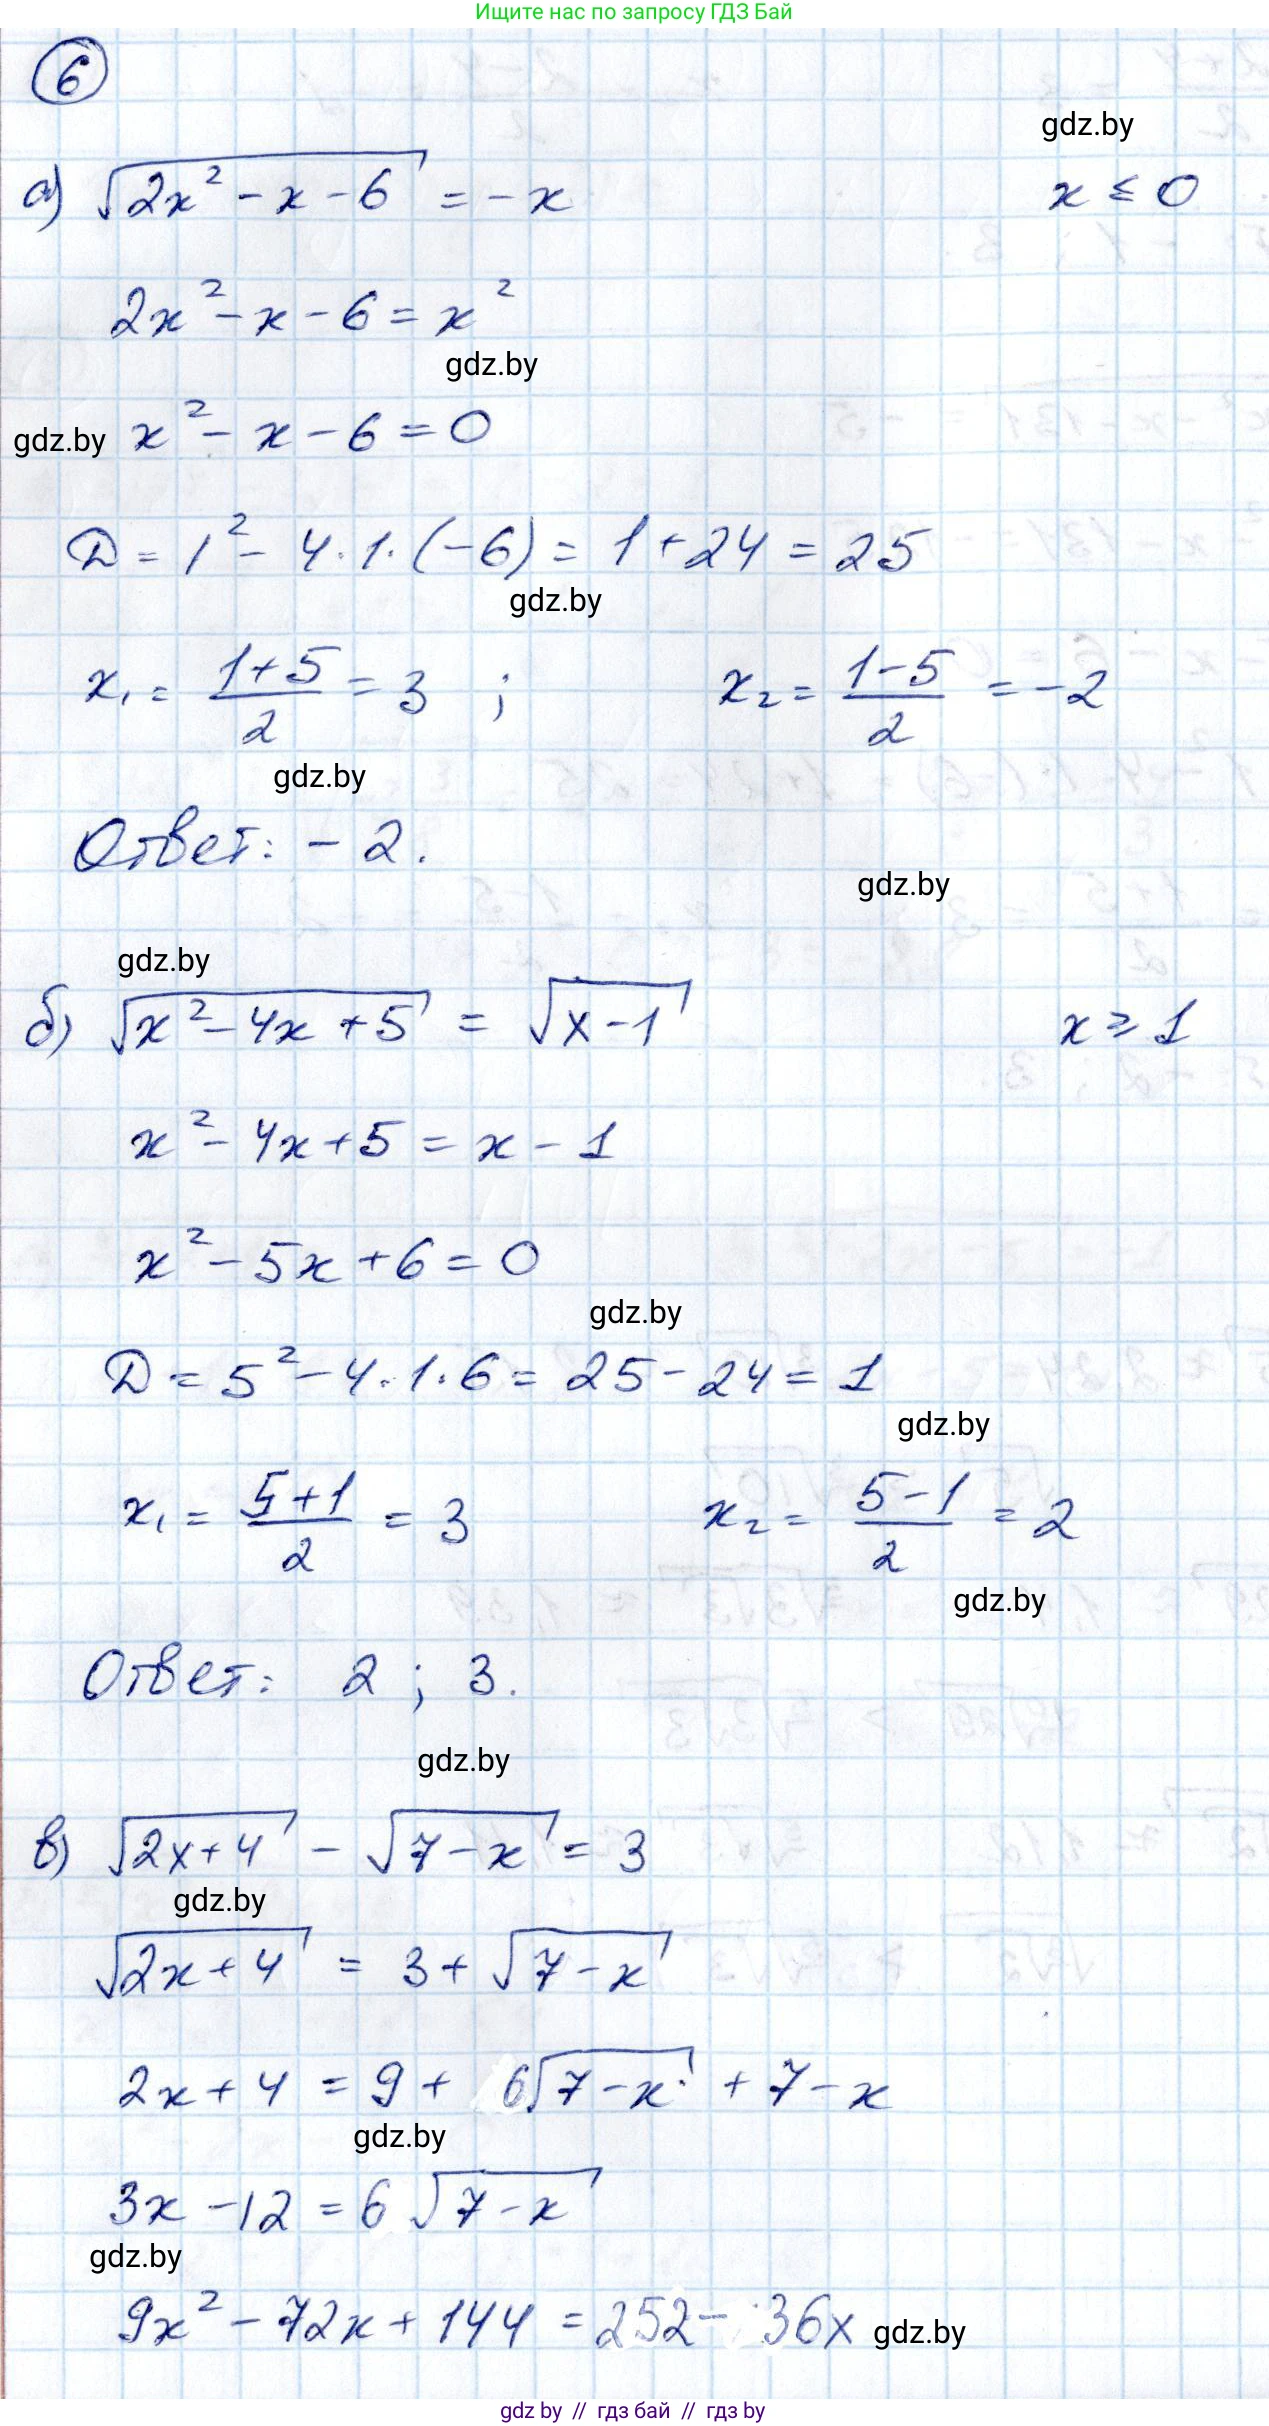 Ищите нас по запросу ГДЗ Бай
6
gdz.by
а) √(2x² - x - 6) = -x x ≤ 0
2x² - x - 6 = x²
gdz.by
gdz.by x² - x - 6 = 0
D = 1² - 4 · 1 · (-6) = 1 + 24 = 25
gdz.by
x₁ = (1+5)/2 = 3 ; x₂ = (1-5)/2 = -2
gdz.by
Ответ: - 2.
gdz.by
gdz.by
б) √(x² - 4x + 5) = √(x - 1) x ≥ 1
x² - 4x + 5 = x - 1
x² - 5x + 6 = 0
gdz.by
D = 5² - 4 · 1 · 6 = 25 - 24 = 1
gdz.by
x₁ = (5+1)/2 = 3 x₂ = (5-1)/2 = 2
gdz.by
Ответ: 2 ; 3.
gdz.by
в) √(2x+4) - √(7-x) = 3
gdz.by
√(2x+4) = 3 + √(7-x)
2x + 4 = 9 + 6√(7-x) + 7 - x
gdz.by
3x - 12 = 6√(7-x)
gdz.by
9x² - 72x + 144 = 252 - 36x gdz.by
gdz by // гдз бай // гдз by